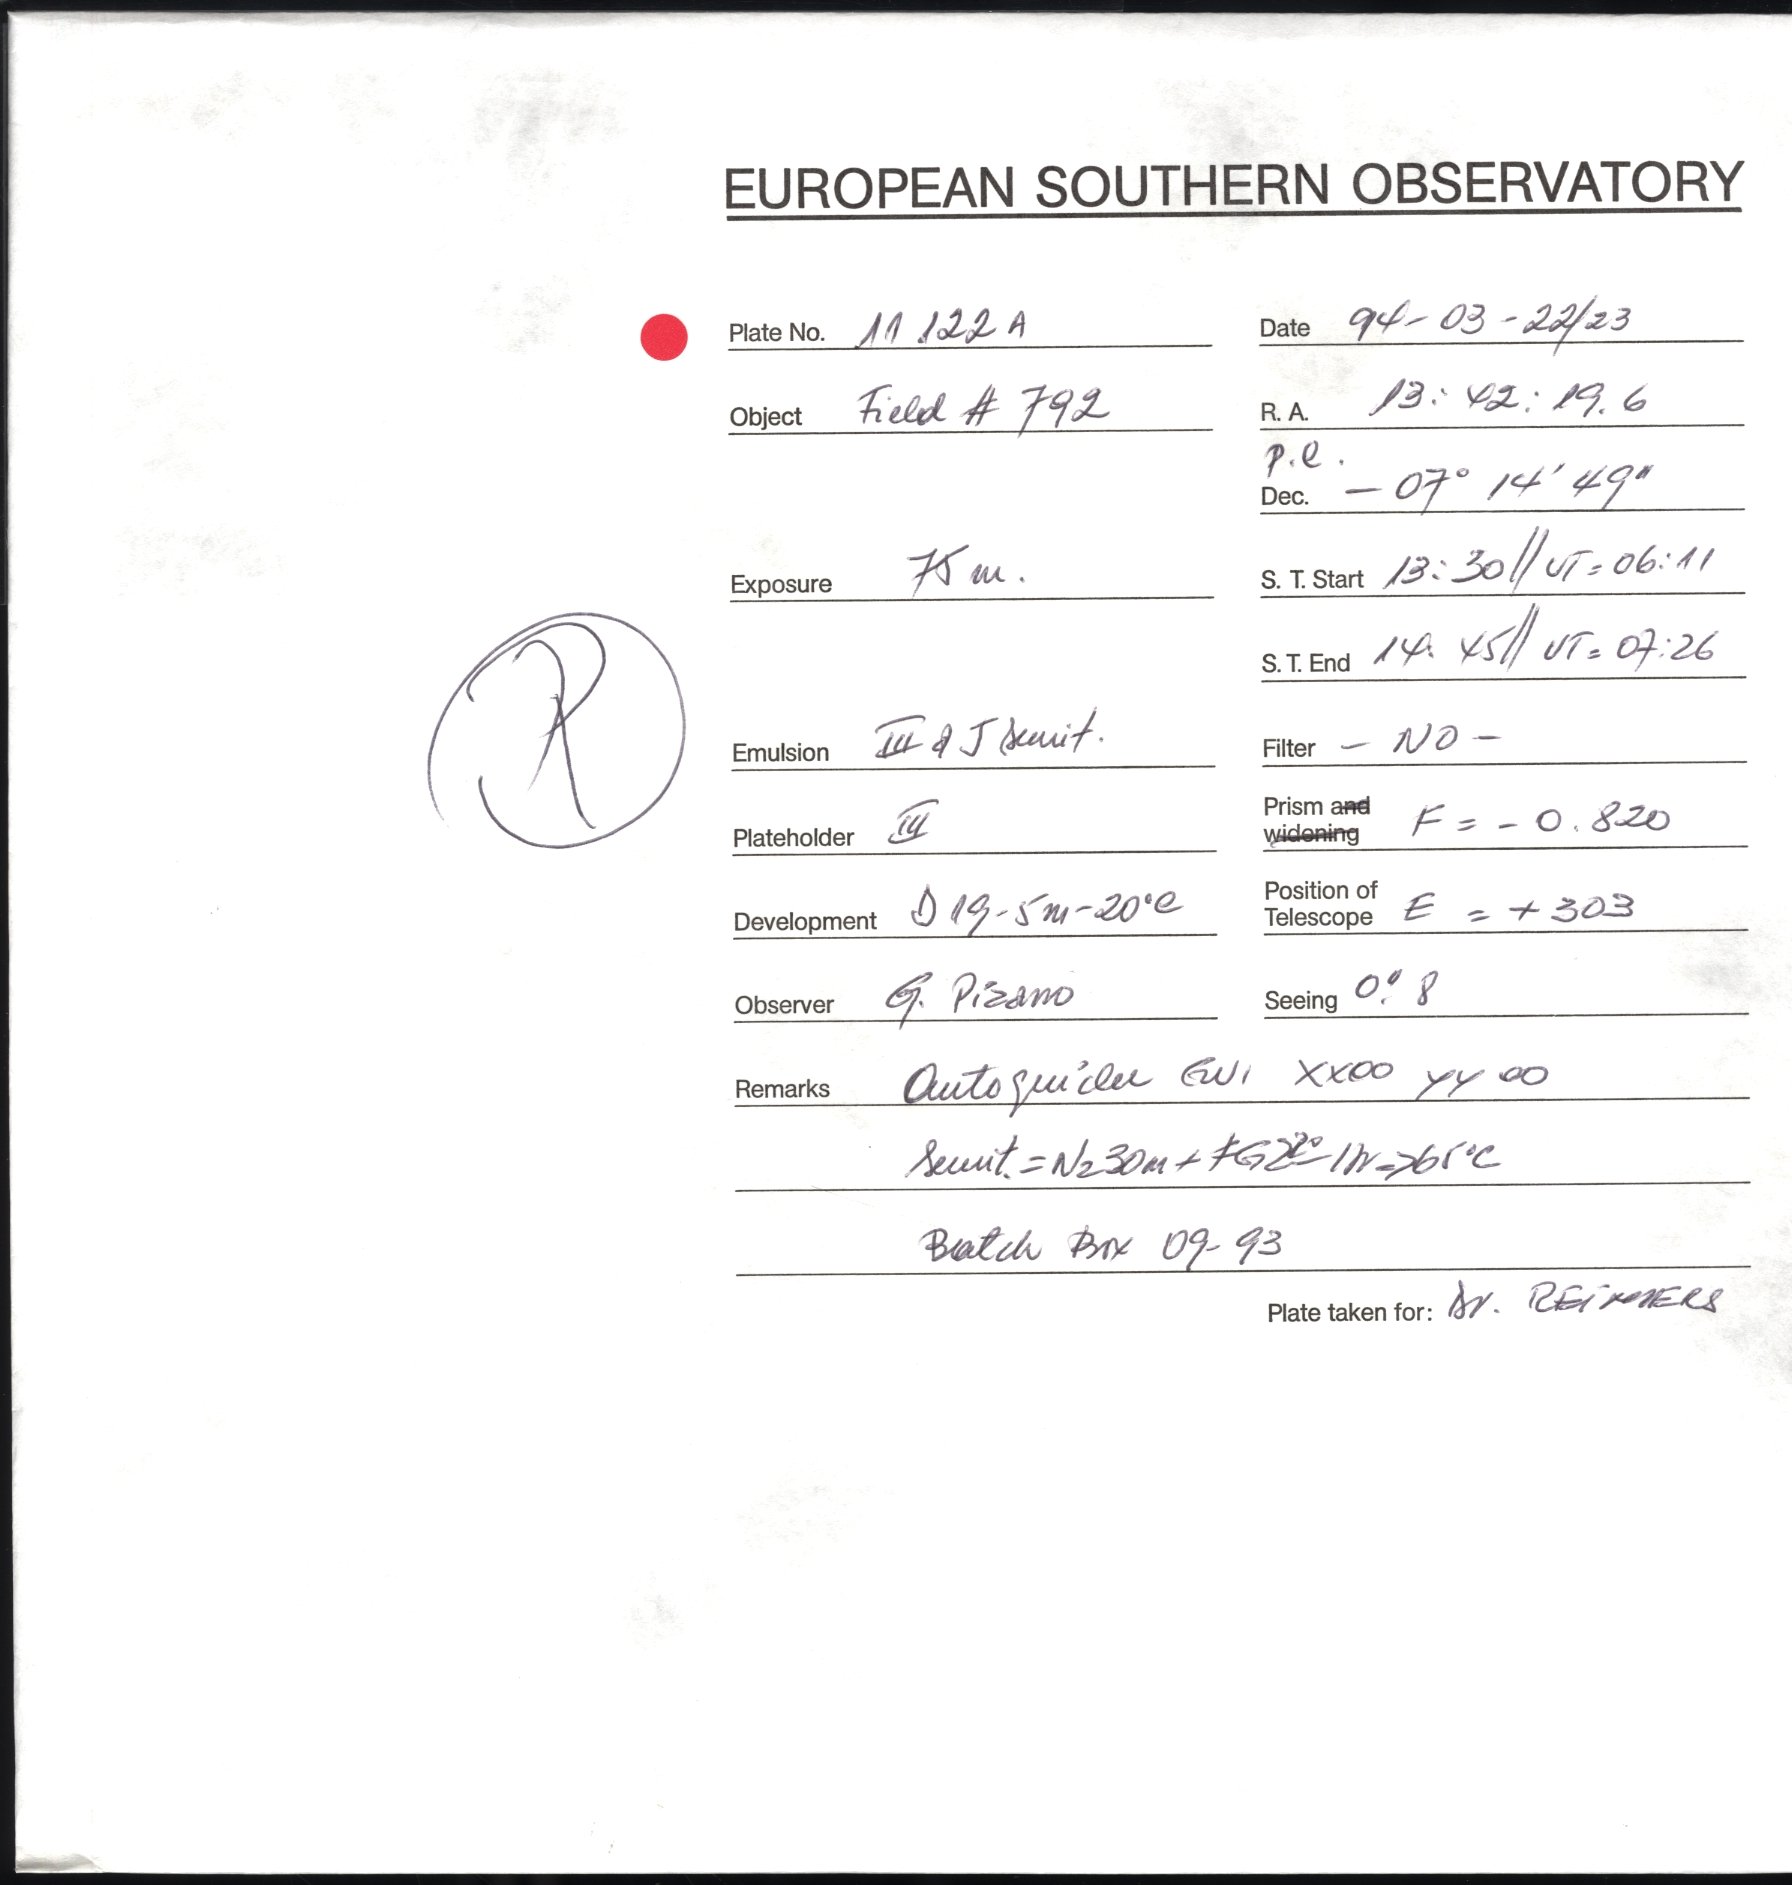 EUROPEAN SOUTHERN OBSERVATORY
Plate No. 11 122 A Date 94-03-22/23
Object Field # 792 R. A. 13: 42: 19.6
p.e.
Dec. - 07° 14' 49"
Exposure 75 m. S. T. Start 13:30// UT= 06:11
S. T. End 14: 45// UT= 07:26
R
Emulsion III a J sensit. Filter - NO -
Plateholder III Prism and widening F = - 0.820
Development D 19-5m-20°C Position of Telescope E = + 303
Observer G. Pizarro Seeing 0".8
Remarks Autoguider XX00 YY 00
Sensit. = N2 30m + FG 2% 65°C
Batch Box 09-93
Plate taken for: Dr. REIMERS